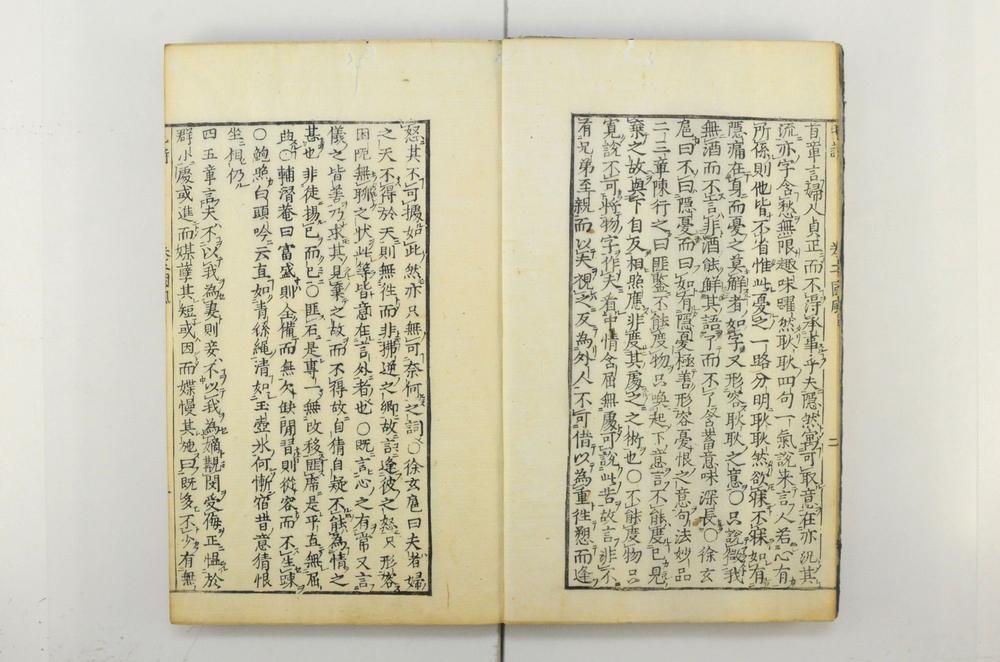 首章言婦人貞正而不得承事乎夫隱然寓可取意在亦汎其
流亦字含愁無限趣味曜然耿耿四句一氣說来言人若心有
所係則他皆不省惟此憂之一路分明耿耿然欲寐不寐如有
隱痛在身而憂之莫觧者如字又形容耿耿之意〇只說微我
無酒而不言非酒能觧其語了而不了含蓄意味深長〇徐玄
扈曰不曰隱憂而曰如有隱憂極善形容憂恨之意句法妙品
二三章陳行之曰匪鑒不能度物只喚起下意言不能度己見
棄之故與下自反相照應非度其處之之術也〇不能度物只
寬說不可將物字作夫看中情含屈無處可說此苦故言非不
有兄弟至親而以夫視之反為外人不可借以為重徃愬而逢
怒其不可據如此然亦只無可奈何之詞〇徐玄扈曰夫者婦
之天不得於天則無徃而非拂逆之鄉故言逢彼之怒只形容
困阨無聊之状此等皆意在言外者也〇既言心之有常又言
儀之皆善乃求其見棄之故而不得故自猜自疑不能為情之
甚也非徒揚已而已〇匪石是專一無改移匪席是平直無屈
曲〇輔潜菴曰富盛則全備而無欠缺閒習則從容而不生踈
〇鮑照白頭吟云直如青絲繩清如玉壺氷何慚宿昔意猜恨
坐相仍
四五章言夫不以我為妻則妾不以我為嫡觀閔受侮正慍於
群小處或進而媒孽其短或因而媟慢其施曰既多不少有無